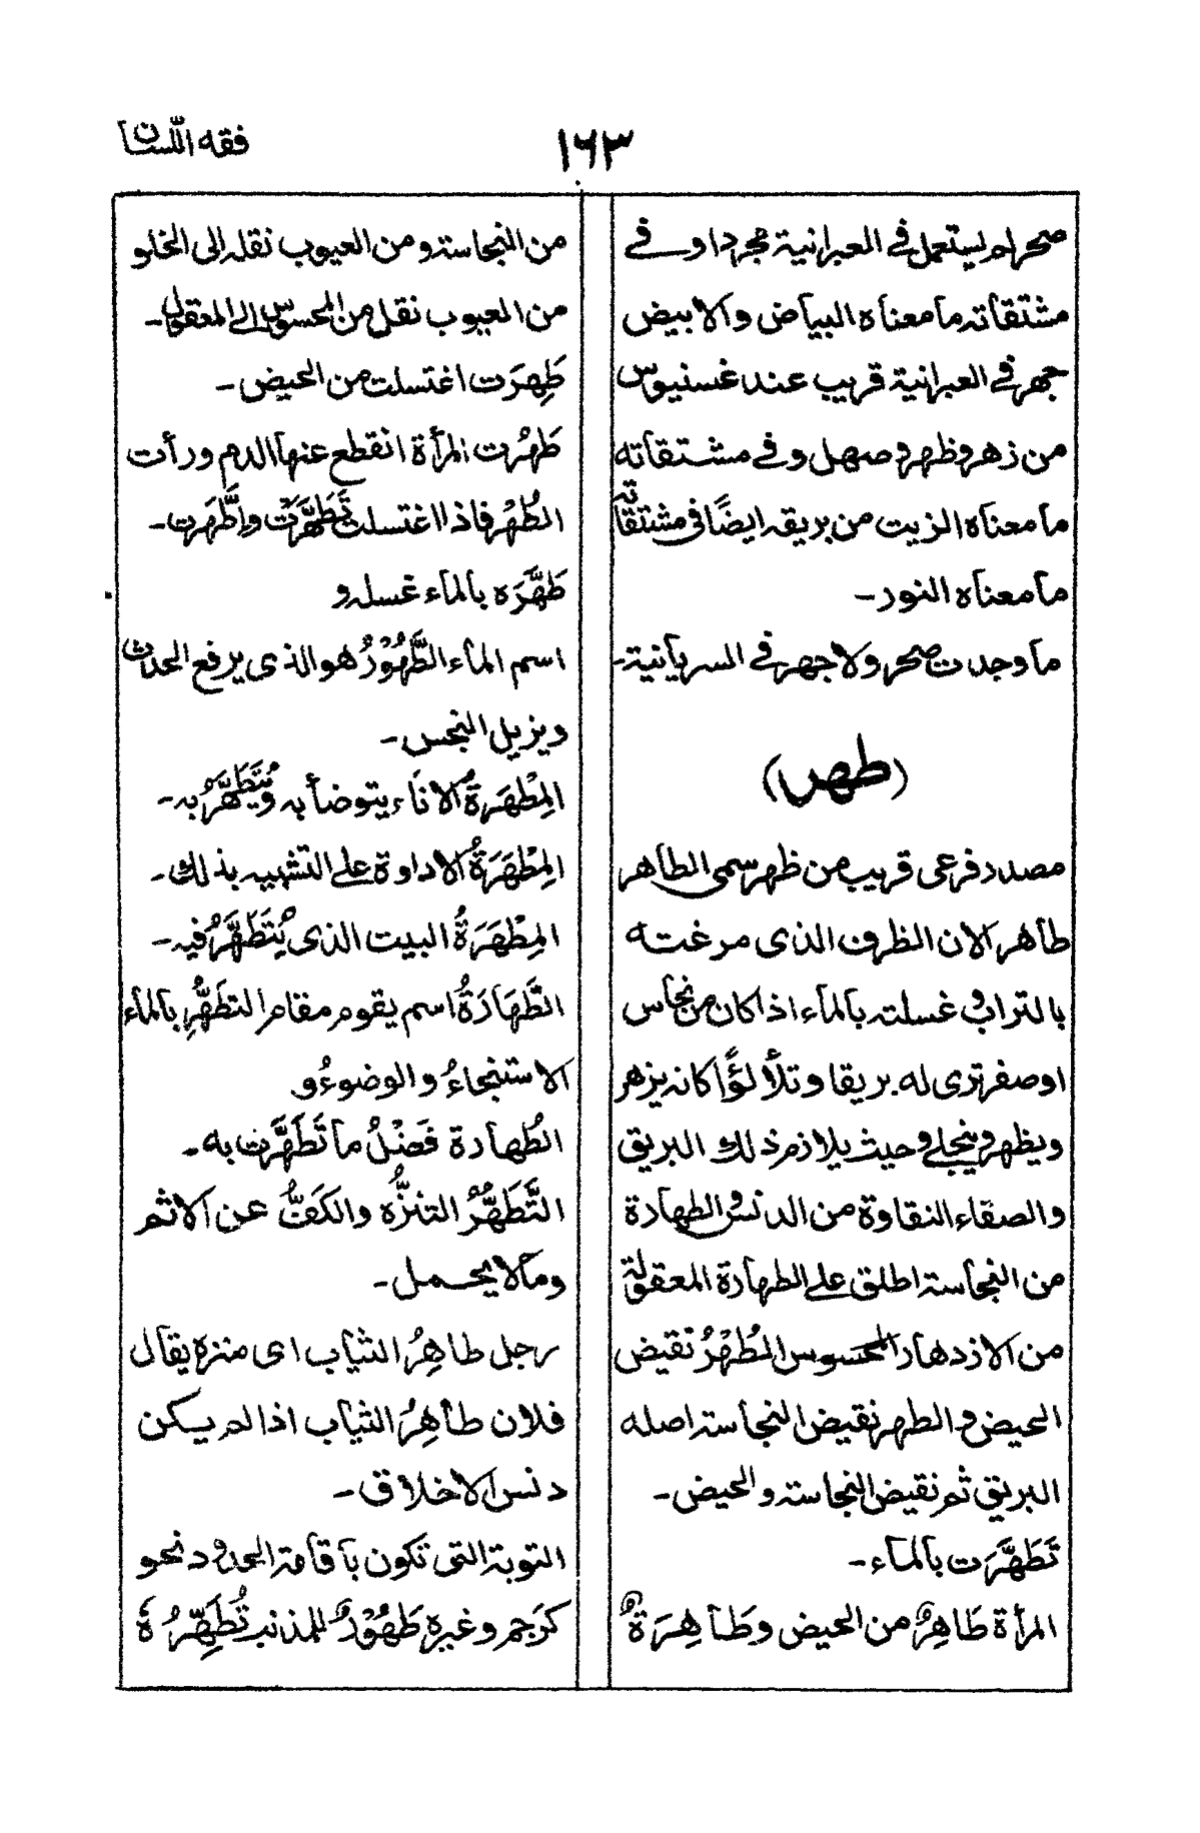 فقه اللسان
١٦٣
صحر لم يستعمل في العبرانية مجردا وفي
مشتقاته ما معناه البياض والابيض
جهر في العبرانية قريب عند غسنيوس
من زهر وظهر وصهل وفي مشتقاته
ما معناه الزيت من بريقه ايضًا في مشتقاته
ما معناه النور ـ
ما وجدت صحر ولا جهر في السريانية ـ
(طهر)
مصدر فرعى قريب من ظهر سمى الطاهر
طاهر الان الظرف الذى مرغته
بالتراب و غسلته بالماء اذا كان من نحاس
او صفر ترى له بريقا و تلألؤًا كانه يزهر
ويظهر وينجلى وحيث يلازم ذلك البريق
والصقاء النقاوة من الدنس و الطهارة
من النجاسة اطلق على الطهارة المعقولة
من الازدهار المحسوس الطُهْرُ نقيض
الحيض و الطهر نقيض النجاسة اصله
البريق ثم نقيض النجاسة والحيض ـ
تَطَهَّرَت بالماء ـ
المرأة طَاهِرٌ من الحيض وطَاهِرَةٌ
من النجاسة ومن العيوب نقله الى الخلو
من العيوب نقل من المحسوس الى المعقول ـ
طَهِرَت اغتسلت من الحيض ـ
طَهُرت المرأة انقطع عنها الدم ورأت
الطُهْر فاذا اغتسلت تَطَهَّرَتْ واطَّهَرت ـ
طَهَّرَه بالماء غسله و
اسم الماء الطَّهُوْرُ هو الذى يرفع الحدث
ويزيل النجس ـ
المِطْهَرَةُ الاناء يتوضأ به ويُتَطَهَّرُ به ـ
المِطْهَرَةُ الاداوة على التشبيه بذلك ـ
المِطْهَرَةُ البيت الذى يُتَطَهَّرُ فيه ـ
الطَّهَارَةُ اسم يقوم مقام التطَهُّرِ بالماء
الاستنجاءُ والوضوءُ و
الطُهارة فَضْلُ ما تَطَهَّرت به ـ
التَّطَهُّرُ التنزُّه والكَفُّ عن الاثم
وما لا يحمل ـ
رجل طاهِرُ الثياب اى منزه يقال
فلان طاهِرُ الثياب اذا لم يكن
دنس الاخلاق ـ
التوبة التى تكون باقامة الحدود نحو
كرَجم وغيره طَهُوْرٌ للمذنب تُطَهِّرُهُ